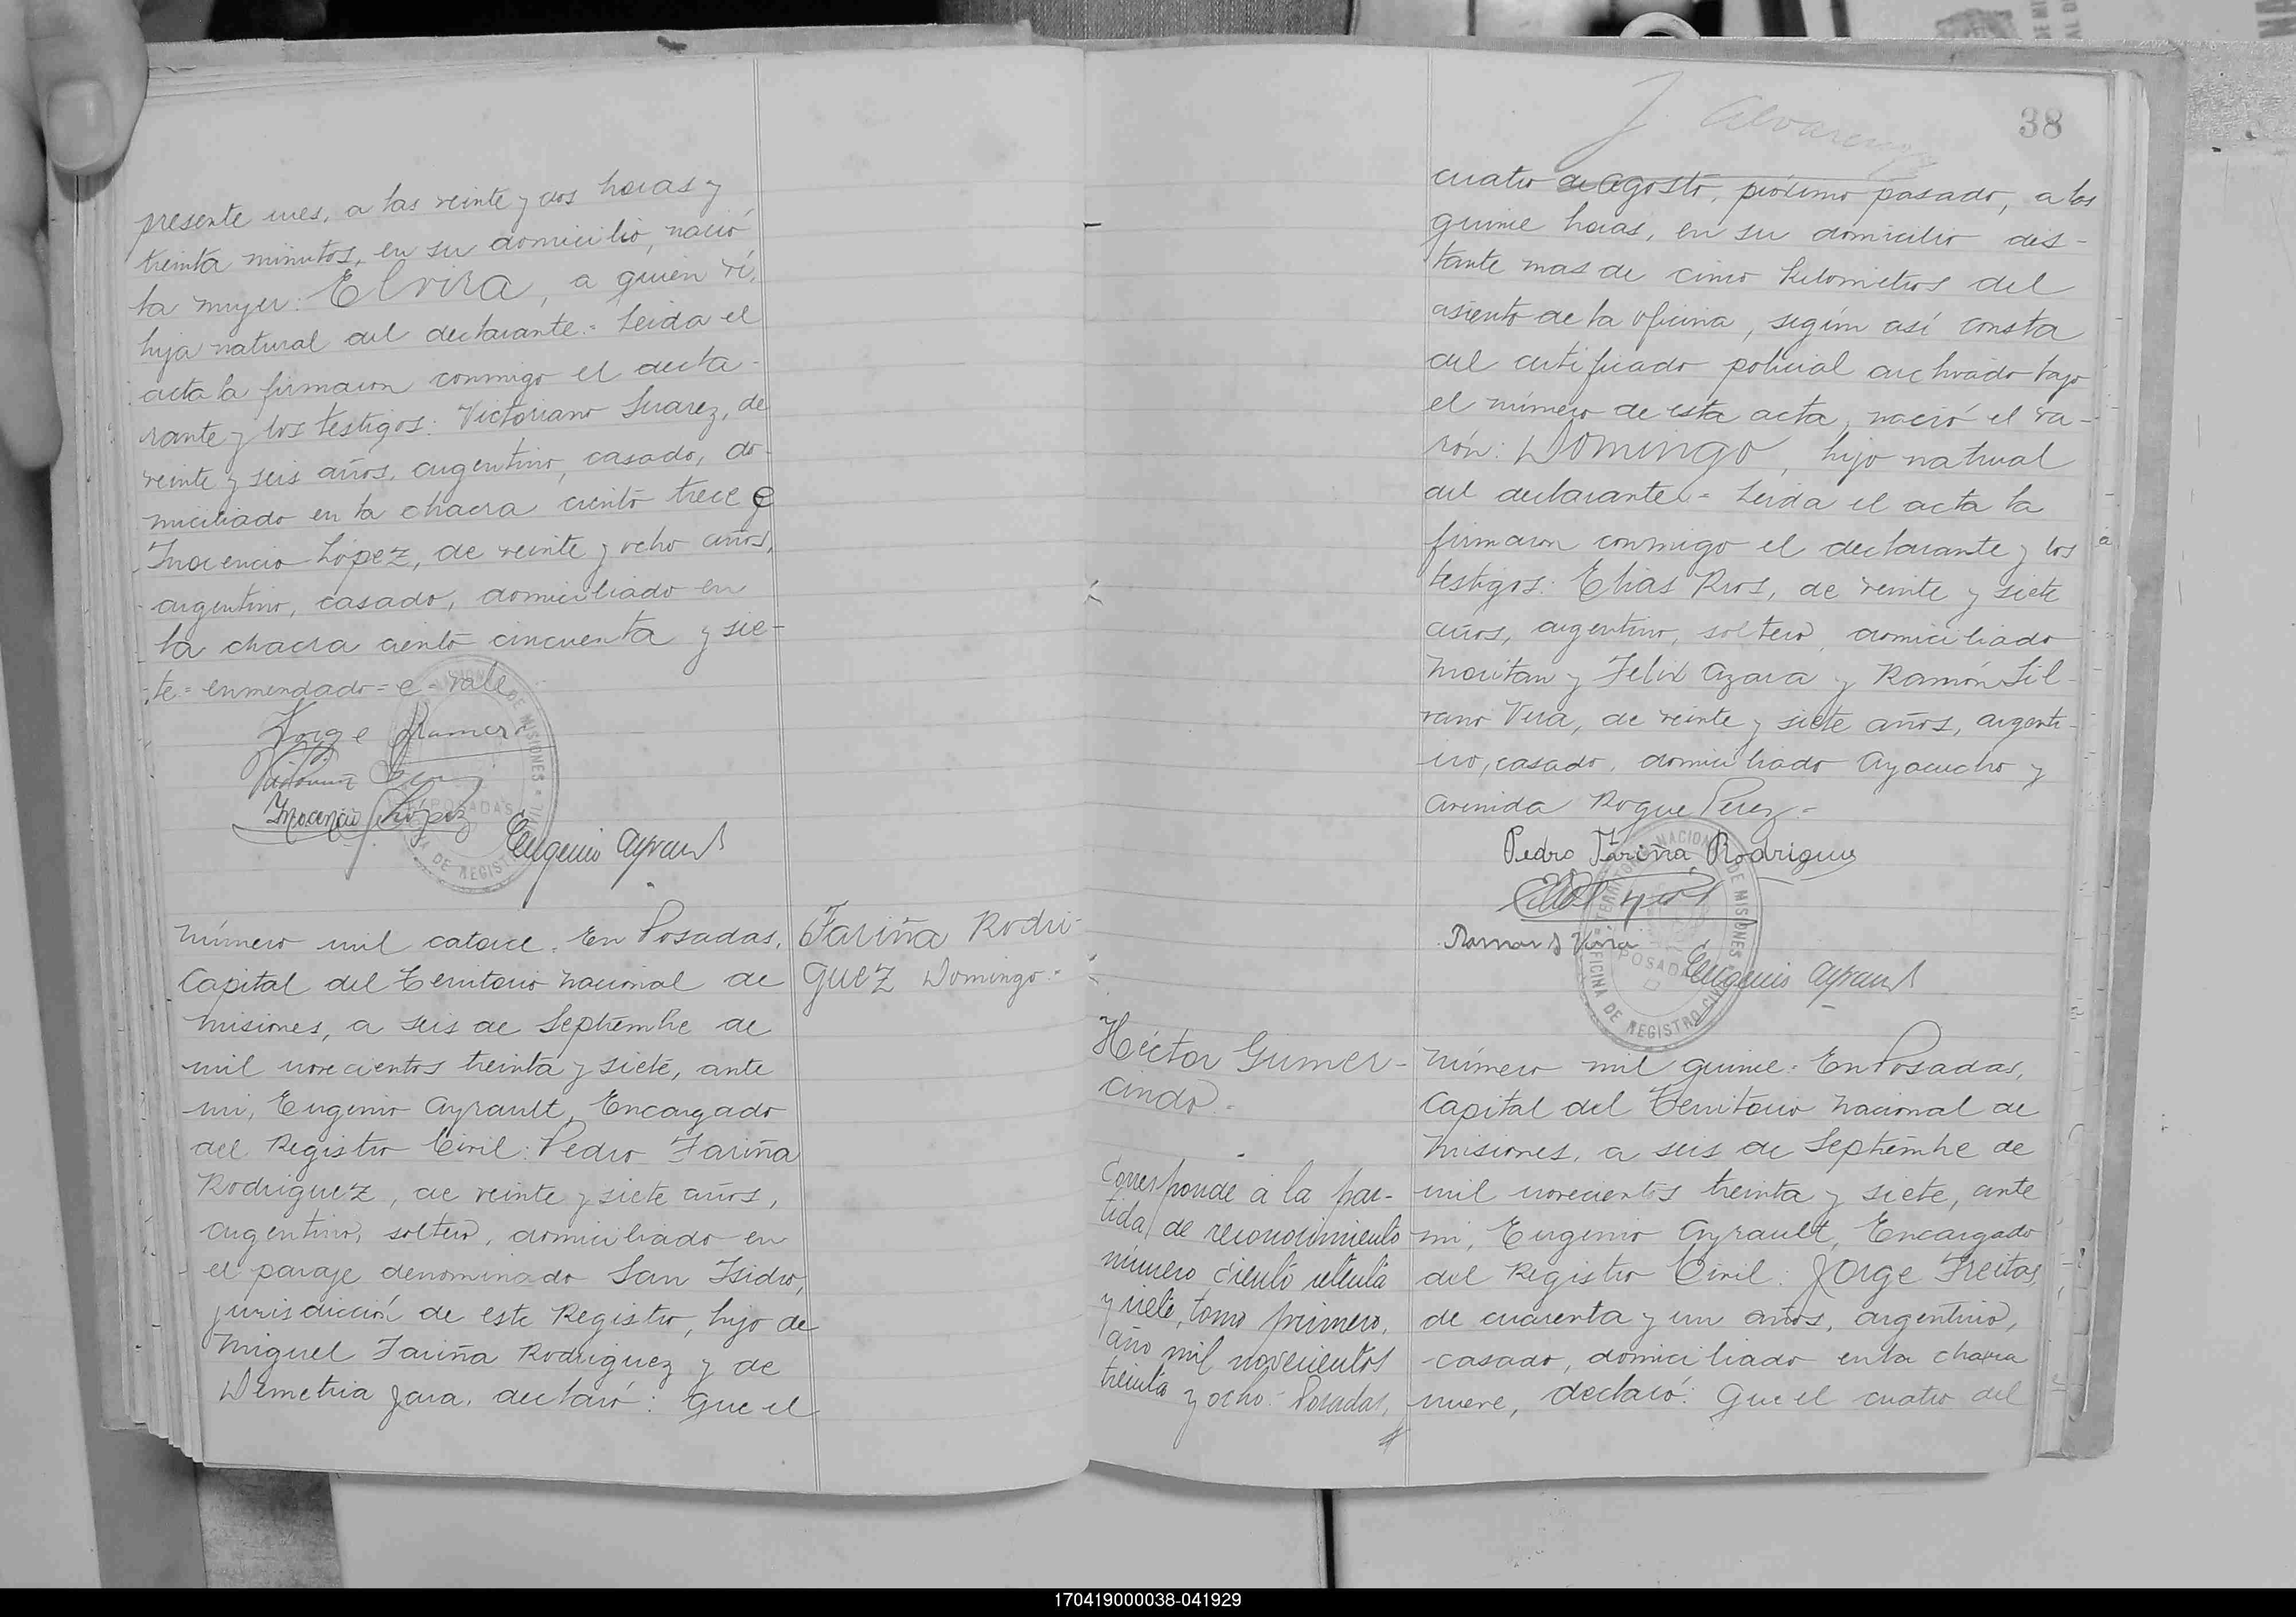 presente mes, a las veinte y dos horas y
treinta minutos, en su domicilio, nació
la mujer: Elvira, a quien ví,
hija natural del declarante.= Leida el
acta la firmaron conmigo el decla-
rante y los testigos: Victoriano Suarez, de
veinte y seis años, argentino, casado, do-
miciliado en la chacra ciento trece e
Inocencio López, de veinte y ocho años,
argentino, casado, domiciliado en
la chacra ciento cincuenta y sie-
te= enmendado= e= vale
Jorge
Inocencio López
Eugenio Ayrault
Número mil catorce. En Posadas,
Capital del Territorio Nacional de
Misiones, a seis de Septiembre de
mil novecientos treinta y siete, ante
mi, Eugenio Ayrault, Encargado
del Registro Civil: Pedro Fariña
Rodriguez, de veinte y siete años,
argentino, soltero, domiciliado en
el paraje denominado San Isidro,
jurisdicción de este Registro, hijo de
Miguel Fariña Rodriguez y de
Demetria Jara, declaró: Que el
Fariña Rodri-
guez Domingo.=
J. Alvarenga
38
cuatro de Agosto, próximo pasado, a las
quince horas, en su domicilio dis-
tante mas de cinco Kilometros del
asiento de la oficina, según así consta
del certificado policial archivado bajo
el número de esta acta, nació el va-
rón: Domingo, hijo natural
del declarante.= Leida el acta la
firmaron conmigo el declarante y los
testigos: Elias Rios, de veinte y siete
años, argentino, soltero, domiciliado
Moritan y Felix Azara y Ramón Sil-
vano Vera, de veinte y siete años, argenti-
no, casado, domiciliado Ayacucho y
Avenida Roque Perez=
Pedro Fariña Rodriguez
Ramon S Vera
Eugenio Ayrault
TERRITORIO NACIONAL DE MISIONES
POSADAS
OFICINA DE REGISTRO CIVIL
Héctor Gumer-
cindo.=
Corresponde a la par-
tida de reconocimiento
número ciento setenta
y siete, tomo primero,
año mil novecientos
treinta y ocho.- Posadas,
Número mil quince: En Posadas,
Capital del Territorio Nacional de
Misiones, a seis de Septiembre de
mil novecientos treinta y siete, ante
mi, Eugenio Ayrault, Encargado
del Registro Civil: Jorge Freitas,
de cuarenta y un años, argentino,
casado, domiciliado en la chacra
nueve, declaró: Que el cuatro del
170419000038-041929